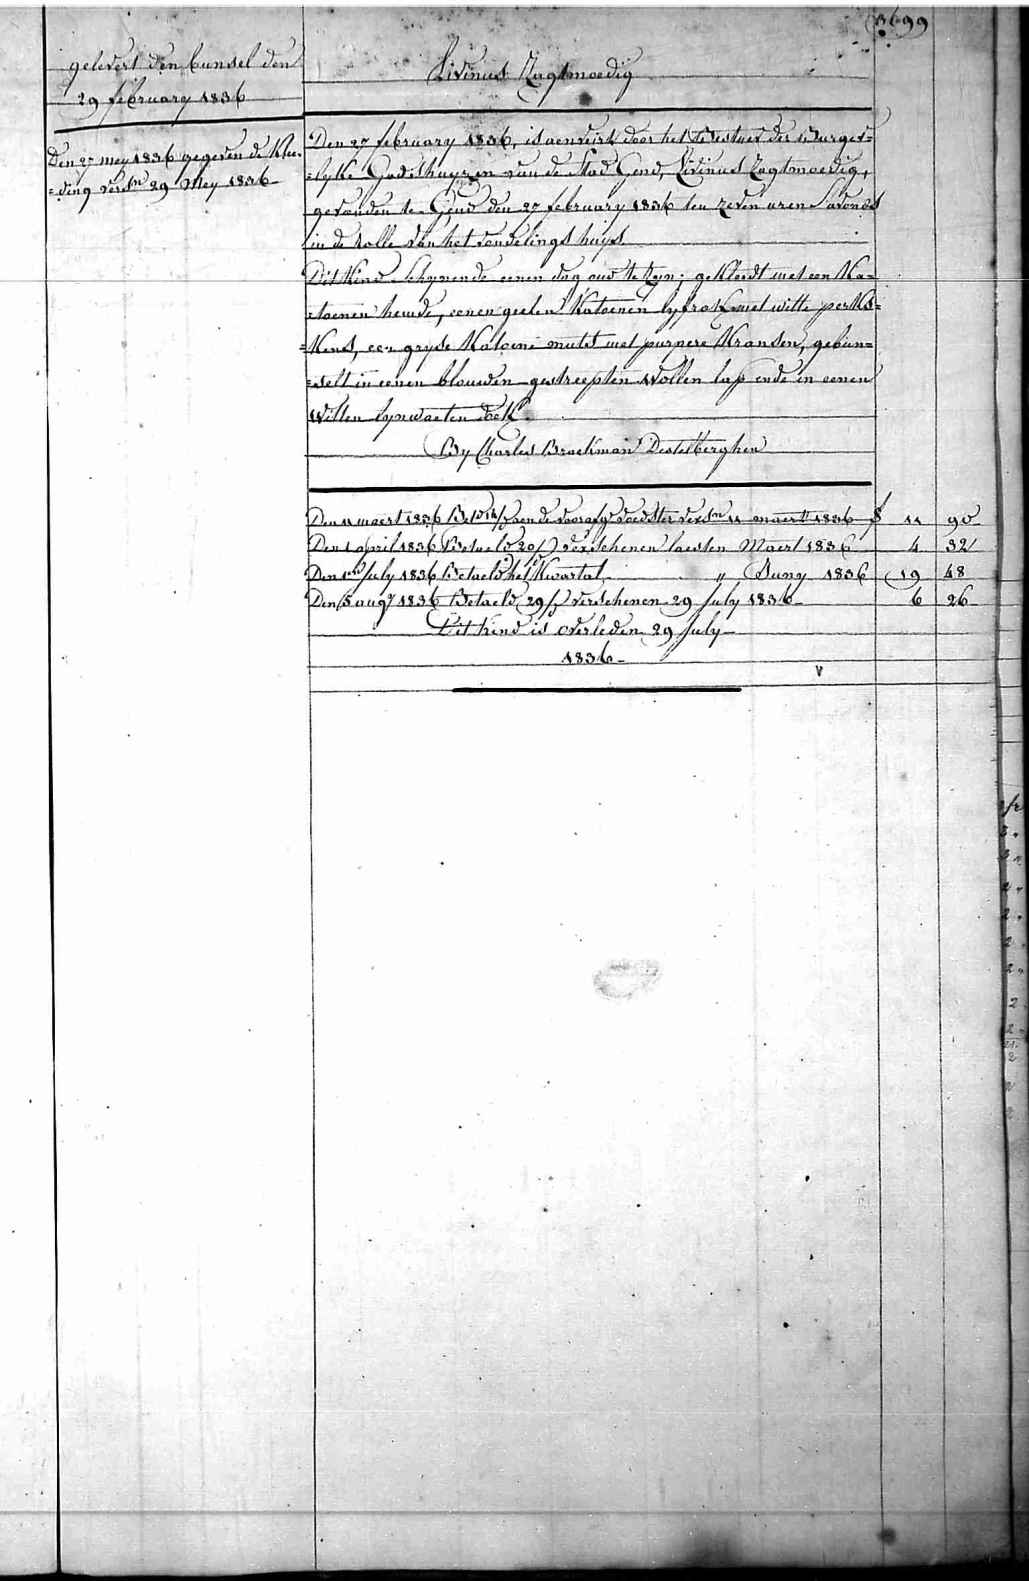 3699
gelevert den bunsel den
29 february 1836
Livinus Zagtmoedig
Den 27 mey 1836 gegeven de Klee-
=ding versn 29 Mey 1836
Den 27 february 1836, is aenveird door het Bestuer der Burger=
=lyke Godshuyzen van de Stad Gend, Livinus Zagtmoedig,
gevonden te Gend den 27 february 1836 ten zeven uren savonds
in de rolle van het vondelings huys
Dit Kind schynende eenen dag oud te zyn; gekleedt met een Ka=
=toenen hemde, eenen geelen Katoenen lyfrok met witte perks=
=Kens, een gryse Katoene muts met purpere Kransen, gebun=
=selt in eenen blouwen gestreepten Wollen lap ende in eenen
Witten lynwaeten doek.
By Charles Brockman Destelberghen
Den 11 maert 1836 Bet aen de voorafge voedster versn 11 maert 1836 f 11 90
Den 1 april 1836 Betaeld 20/ verschenen laesten Maert 1836 4 32
Den 1en July 1836 Betaeld het Kwartal " Juny 1836 19 48
Den 5 augt 1836 Betaeld 29/ verschenen 29 July 1836 6 26
Dit kind is overleden 29 July
1836